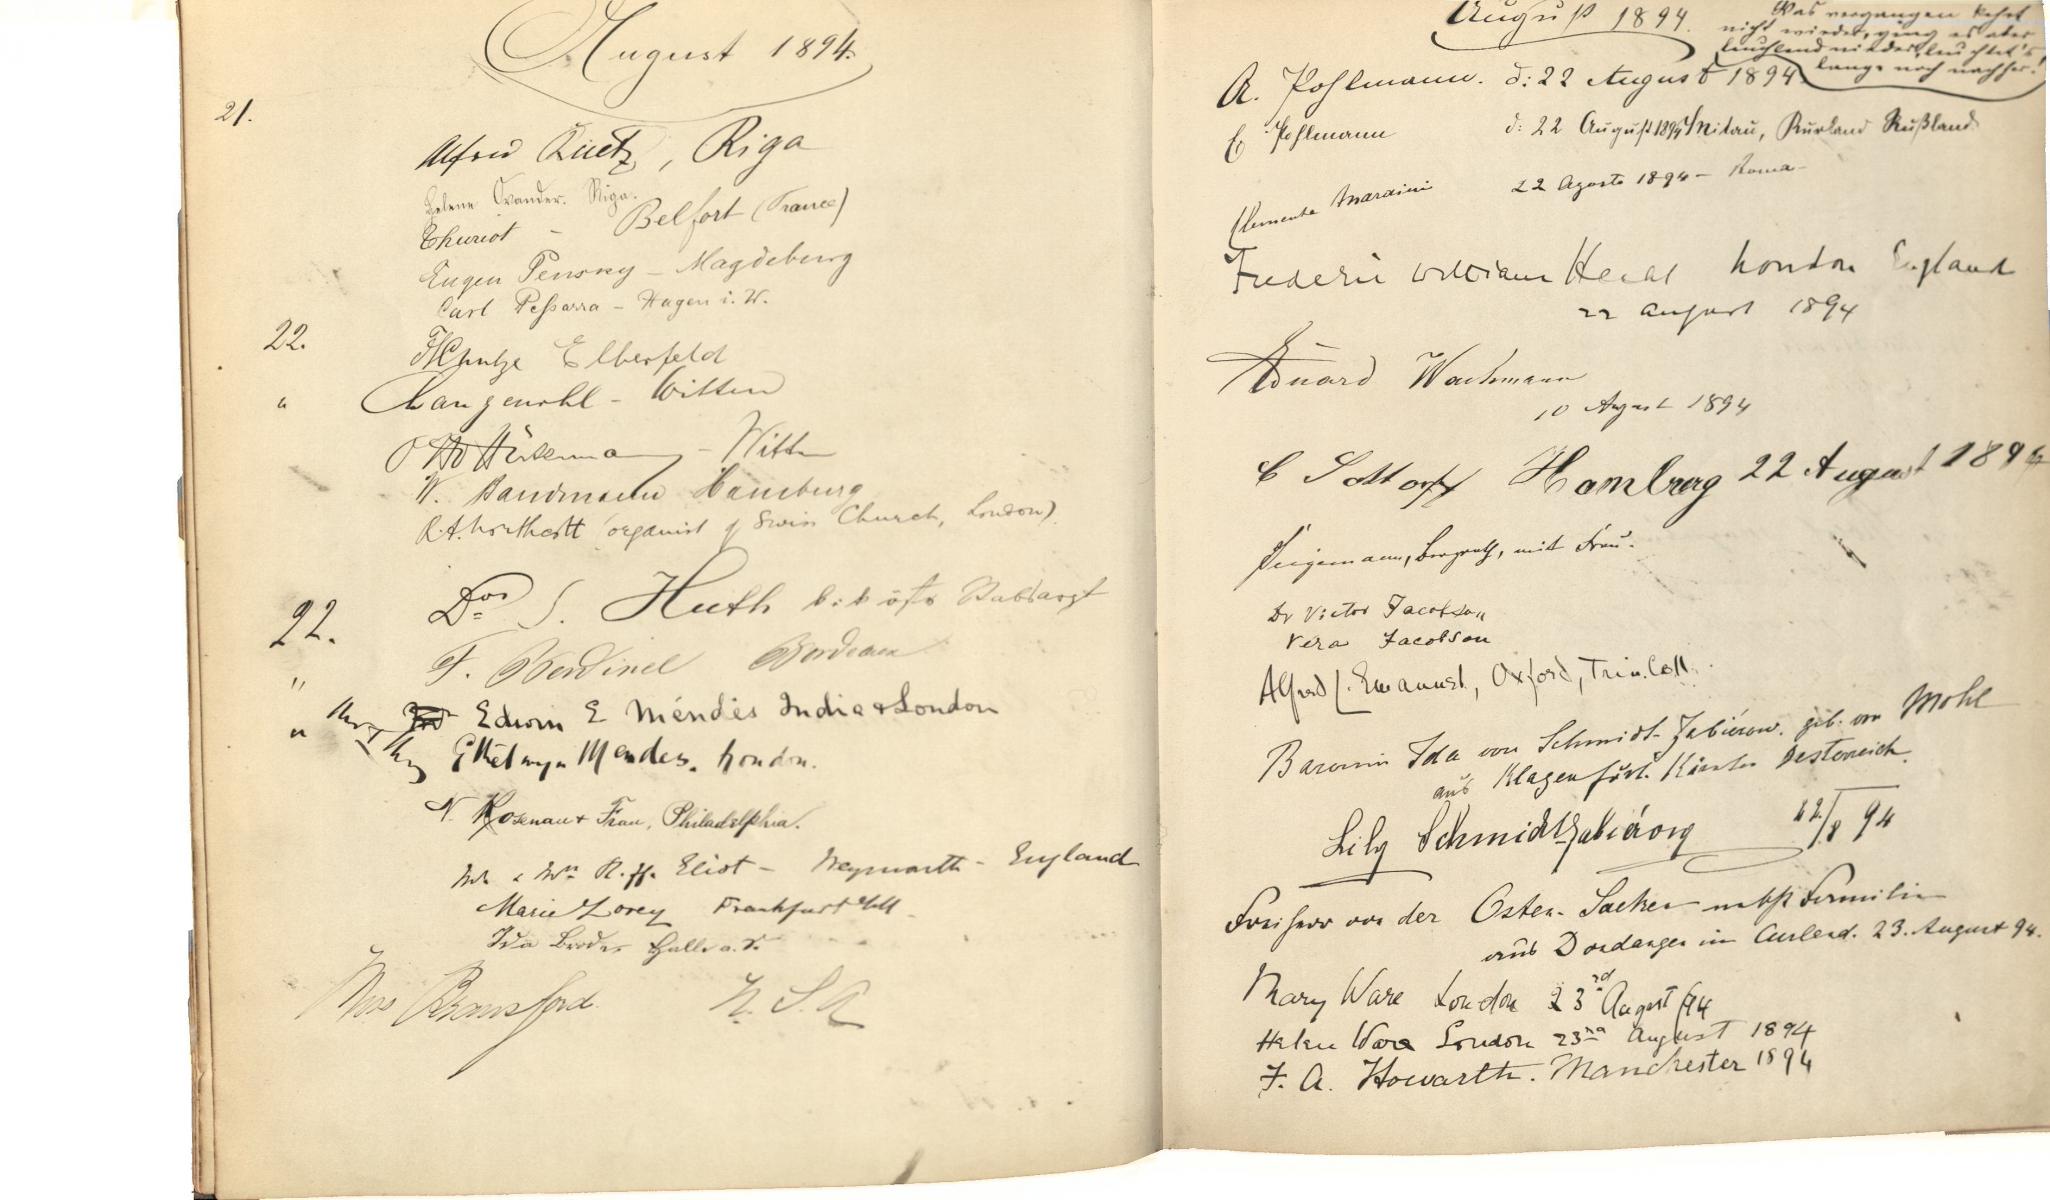 August 1894.
21.
Alfred Kuetz, Riga
Helene Riga.
Thuriot - Belfort (France)
Eugen Pensky - Magdeburg
Carl Peßarra - Hagen i. W.
22.
Elberfeld
" Langewohl - Witten
Otto - Witten
W. Bandmann Hamburg
R.A. Northcott (organist of Swiss Church, London)
22.
Dor S. Huth k: k öst Stabsarzt
" F. Bordeaux
" Edwin E Mendes India & London
Ethelwyn Mendes. London.
N. Rosenau & Frau, Philadelphia.
Mr & Mrs R. ff. Eliot - Weymouth - England
Marie Lorey Frankfurt a/M
Ida Halle a. S.
Miss Bransford. U. S. A
August 1894.
Was vergangen kehrt
nicht wieder, ging es aber
leuchtend nieder, leuchtet's
lange noch nachher!
A. Pohlmann. d: 22 August 1894
E Pohlmann d: 22 August 1894 Mitau, Kurland Rußland
Clemente Maraini 22 Agosto 1894 - Roma -
Frederic William London England
22 August 1894
Eduard Wachmann
10 August 1894
C Hamburg 22 August 1894
Bergrath, mit Frau.
Dr Victor Jacobson
Vera Jacobson
Alfred L. Emanuel, Oxford, Trin. Coll.
Baronin Ida von Schmidt-Zabiérow. geb. von Mohl
aus Klagenfurt. Kärnten Oesterreich.
Lily Schmidt-Zabiérow 22/8 94
Freiherr von der Osten-Sacken nebst Familie
aus Dondangen in Curland. 23. August 94.
Mary Ware London 23rd August /94
Helen Ware London 23rd August 1894
F. A. Howarth. Manchester 1894